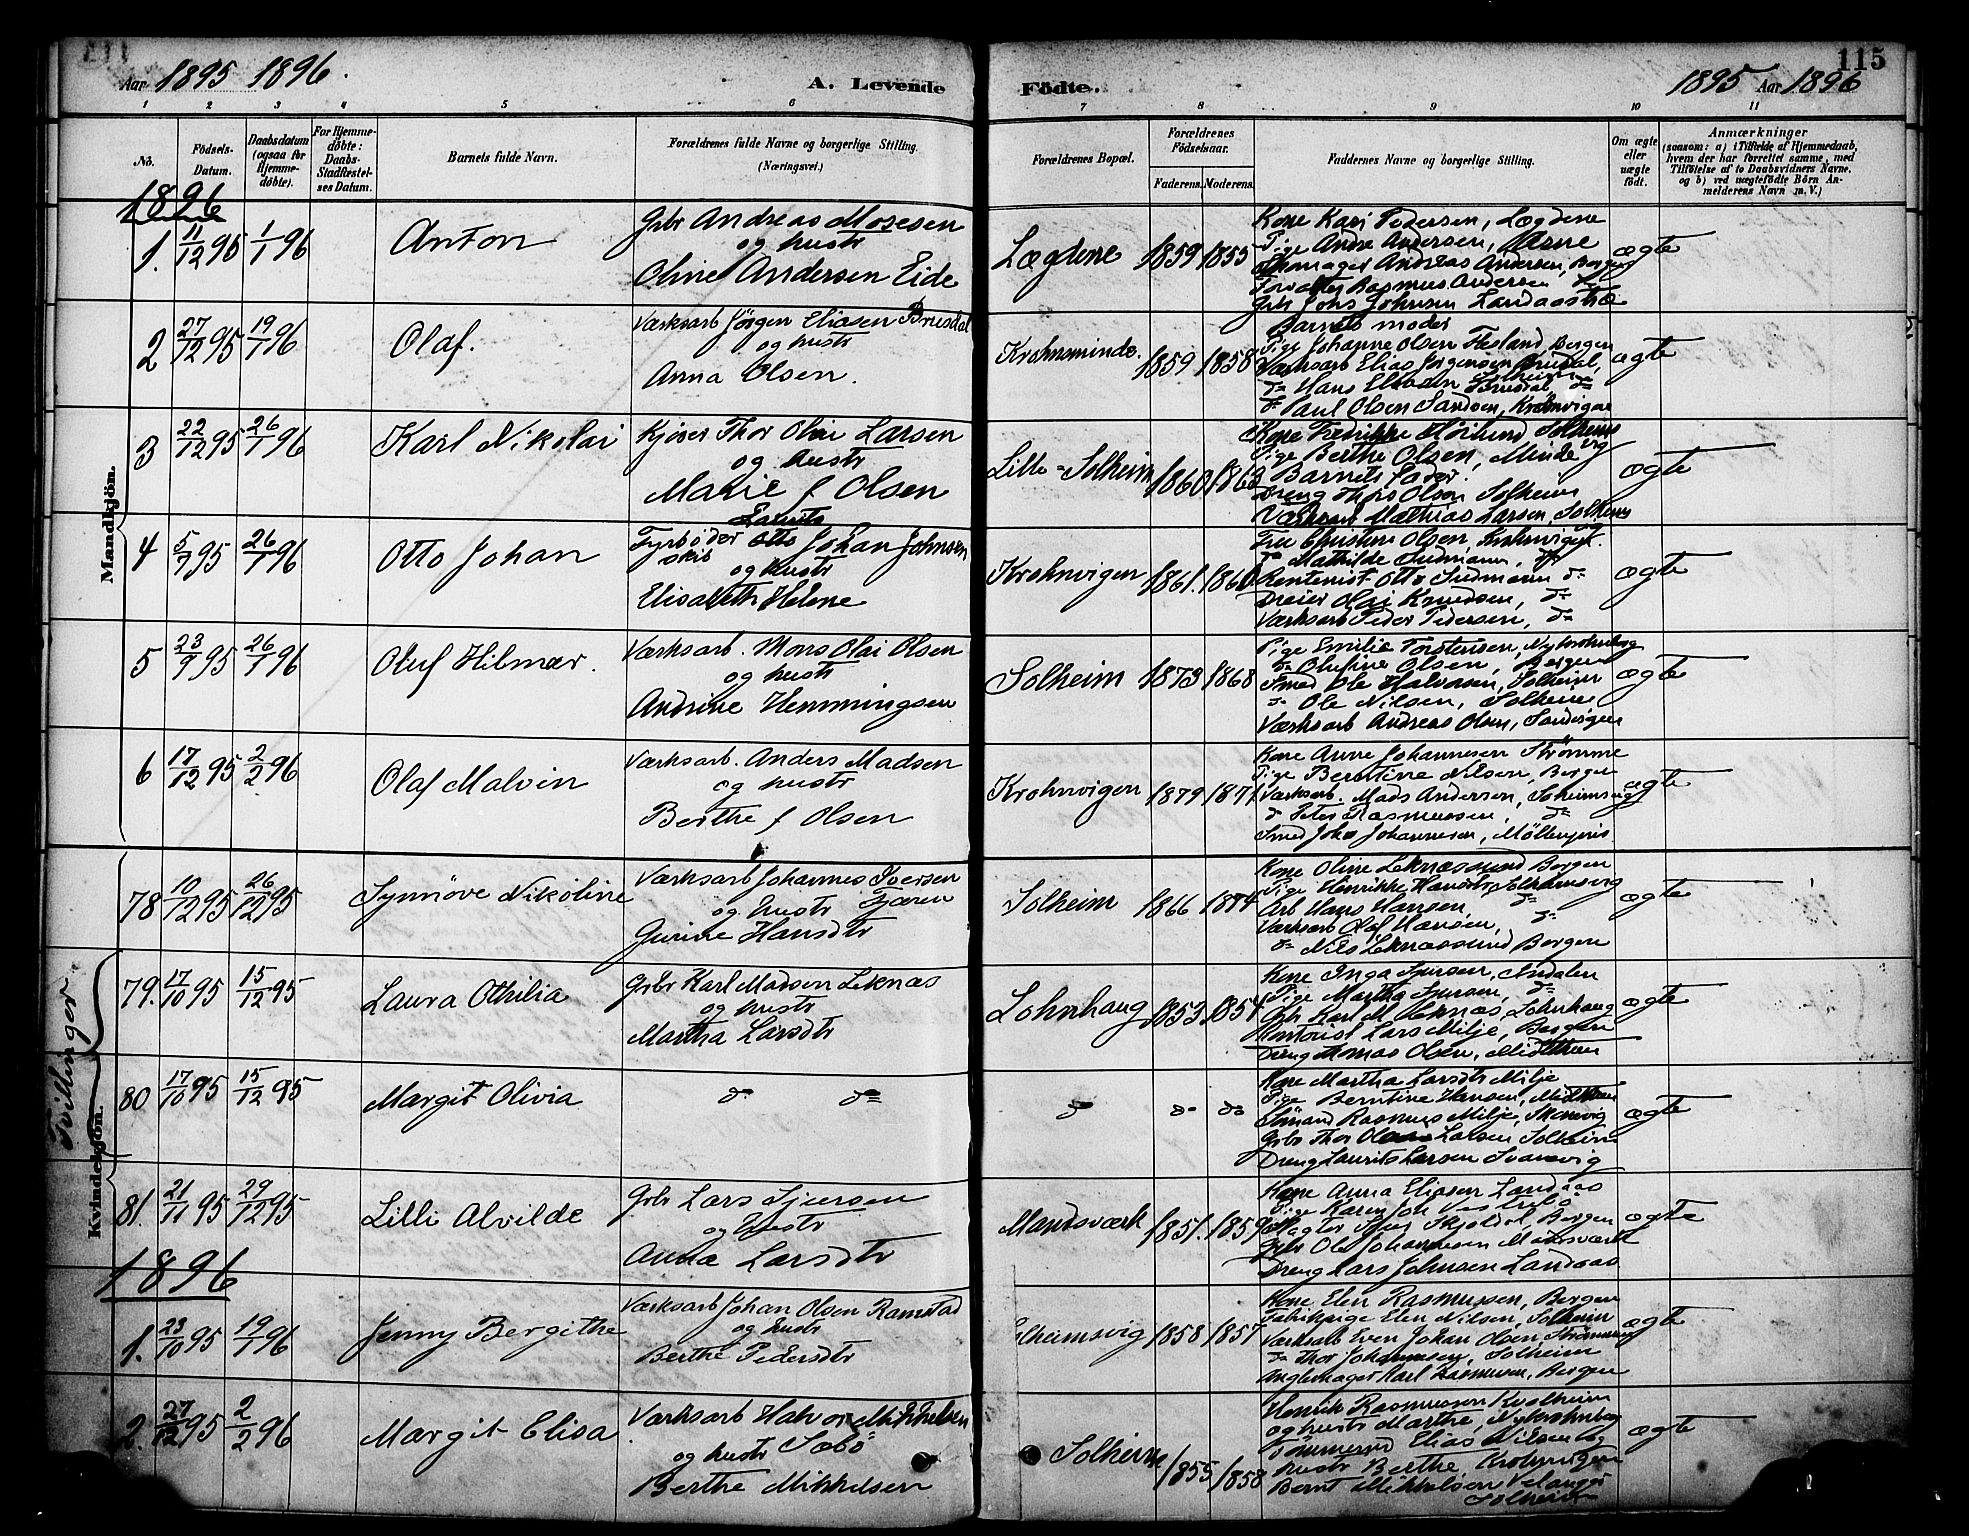 115
Aar 1895 1896.
A. Levende
Födte.
1895 Aar 1896
1 2 3 4 5 6 7 8 9 10 11
No.
Födsels-
Datum.
Daabsdatum
(ogsaa for
Hjemme-
döbte).
For Hjemme-
döbte:
Daabs-
Stadfestel-
ses Datum.
Barnets fulde Navn.
Forældrenes fulde Navne og borgerlige Stilling.
(Næringsvei.)
Forældrenes Bopæl.
Forældrenes
Födselsaar.
Faderens. Moderens.
Faddernes Navne og borgerlige Stilling.
Om ægte
eller
uægte
födt.
Anmærkninger
(saasom: a) i Tilfælde af Hjemmedaab,
hvem der har forrettet samme, med
Tilföielse af to Daabsvidners Navne,
og b) ved uægtefödte Börn An-
melderens Navn m. V.)
Mandkjön.
1896
1. 11/12 95 1/1 96 Anton
Grbr Andreas Mosesen
og hustr
Oline Andersen Eide
Lægdene 1859 1855
Kone Kari Pedersen, Lægdene
Pige Anna Andersen,
Skomager Andreas Andersen, Bergen
Rasmus Andersen
Grbr Johs Johnsen Landaas
ægte
2 27/12 95 19/1 96 Olaf.
Værksarb Jörgen Eliasen Brusdal
og hustr
Anna Olsen.
Krohnsminde. 1859 1858
Barnets moder
Pige Johanne Olsen Bergen
Værksarb Elias Jörgensen Brusdal,
do Hans Eliasen Brusdal, do
do Paul Olsen Sandsen, Krohnvigen
ægte
3 22/12 95 26/1 96 Karl Nikolai
Kjöser Thor Olai Larsen
og hustr
Marie f Olsen
Lille-Solheim 1860 1860
Kone Fredrikke Solheimsvig
Pige Berthe Olsen, Minde
Barnets fader.
Dreng Thors Olsen Solheim
Værksarb Mathias Larsen, Solheimsvig
ægte
4 5/7 95 26/1 96 Otto Johan
Laurits
Fyrböder Otto Johan Johnsen
skib og hustr
Elisabeth Helene
Krohnvigen 1861. 1860
Frue Christine Olsen, Krohnvigen.
do Mathilde Sudmann, do
Rentenist Otto Sudmann do
Dreier Olai Knudsen, do
Værksarb Peder Pedersen, do
ægte
5 23/9 95 26/1 96 Oluf Hilmar.
Værksarb. Mons Olai Olsen
og hustr
Andrine Hemmingsen
Solheim 1873 1868
Pige Emilie Torstensen, Nykrohnborg
do Olufine Olsen, Bergen
Smed Ole Halvorsen, Solheim
do Ole Nilsen, Solheim
Værksarb Andreas Olsen, Sandvigen
ægte
6 17/12 95 2/2 96 Olaf Malvin
Værksarb. Anders Madsen
og hustr
Berthe f Olsen
Krohnvigen 1879 1871
Kone Anne Johannesen Strömme
Pige Berntine Nilsen, Bergen
Værksarb. Mads Andersen, Solheimsvig
do Peter Rasmussen, do
Smed Johs Johannesen, Möllenpris
ægte
Kvindekjön.
78 10/12 95 26/12 95 Synnöve Nikoline
Værksarb Johannes Iversen
og hustr Fjæren
Gurine Hansdtr
Solheim 1866 1874
Kone Oline Leknæssund Bergen
Pige Henrikke Hansdtr, Solheimsvig
Arb Hans Hansen, do
Værksarb Olaf Hansen, do
do Nils Leknæssund Bergen
ægte
Tvillinger
79. 17/10 95 15/12 95 Laura Othilia
Grbr Karl Madsen Leknæs
og hustr
Martha Larsdtr
Lohnhaug 1853. 1854
Kone Inga Sjursen, Indalen
Pige Martha Sjursen, do
Grbr Karl M. Leknæs, Lohnhaug
Kontorist Lars Milje, Bergen
Dreng Thomas Olsen, Midttun
ægte
80 17/10 95 15/12 95 Margit Olivia
do do
do do do
Kone Martha Larsdtr Milje
Pige Berntine Hansen, Midttun
Sömand Rasmus Milje, Skonevig
Grbr Thor Larsen Solheim
Dreng Laurits Larsen Svanevig
ægte
81. 21/11 95 29/12 95 Lilli Alvilde
Grbr Lars Sjursen
og hustr
Anna Larsdtr
Mandsværk 1851. 1859
Kone Anna Eliasen Landaas
Pige Karen Joh
Sjur Skjoldal, Bergen
Grbr Ole Johannesen Mandsværk
Dreng Lars Johnsen Landaas
ægte
1896
1. 23/10 95 19/1 96 Jenny Bergithe
Værksarb Johan Olsen Ramstad
og hustr
Berthe Pedersdtr
Solheimsvig 1858 1857
Kone Elen Rasmussen, Bergen
Fabrikpige Elen Nilsen, Solheim
Værksarb Even Johan Olsen Strömmen
do Thor Johannesen, Solheim
Karl Rasmussen, Bergen
ægte
2. 27/12 95 2/2 96 Margit Elisa
Værksarb Halvor Mikkelsen
og hustr Sæbö
Berthe Mikkelsen
Solheim 1855 1858
Henrik Rasmussen Kvalheim
og hustr Marthe, Nykrohnborg
Tömmermd Elias Nilsen og
hustr Berthe Krohnvigen
Bernt Mikkelsen
Solheim
ægte